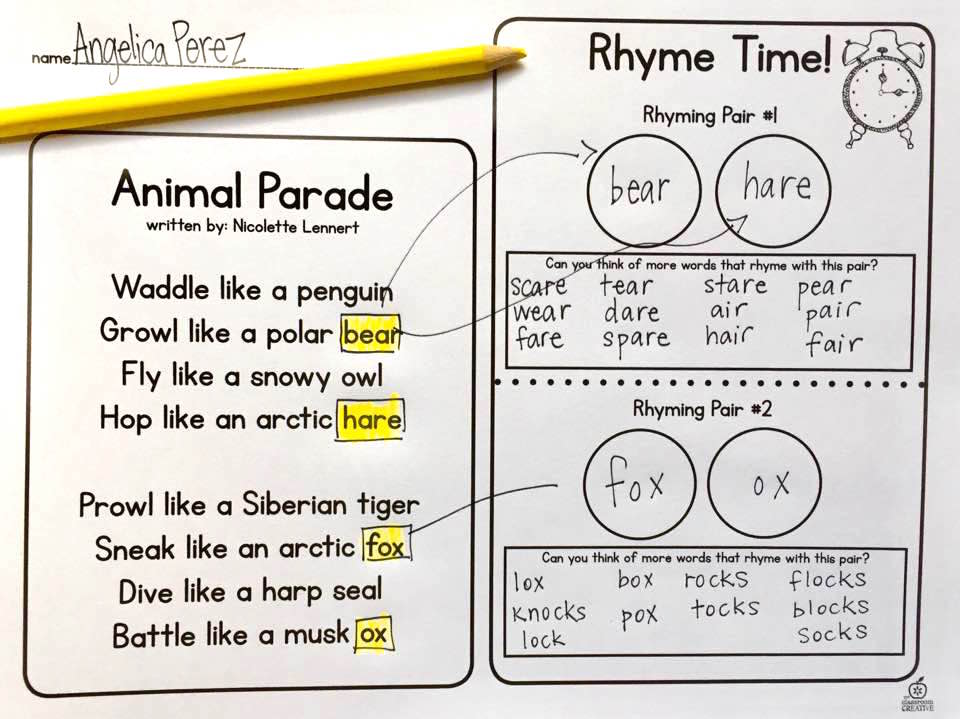 name Angelica Perez
Animal Parade
written by: Nicolette Lennert
Waddle like a penguin
Growl like a polar bear
Fly like a snowy owl
Hop like an arctic hare
Prowl like a Siberian tiger
Sneak like an arctic fox
Dive like a harp seal
Battle like a musk ox
Rhyme Time!
Rhyming Pair #1
bear hare
Can you think of more words that rhyme with this pair?
scare tear stare pear
wear dare air pair
fare spare hair fair
Rhyming Pair #2
fox ox
Can you think of more words that rhyme with this pair?
lox box rocks flocks
knocks pox tocks blocks
lock socks
classroom
CREATIVE